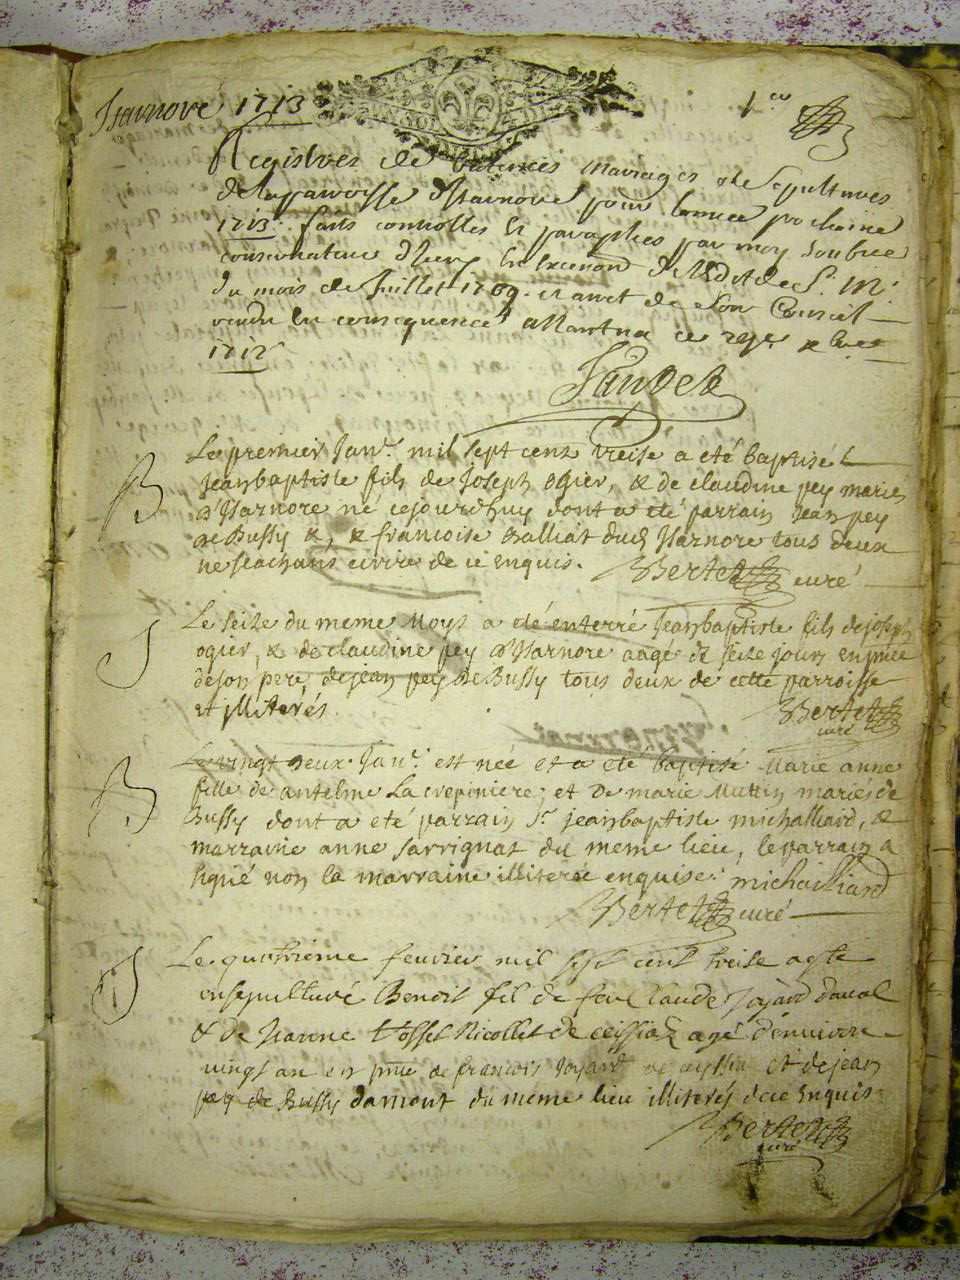 Isarnore 1713
1er
Registres de batêmes mariages et sepultures
de la parroisse d'Isarnore pour lannee prochaine
1713. faits controlles et paraphes par moy soubne
conservateur d'Iceux En Execuon de lEdit de S. M.
du mois de Juillet 1709. et arret de son Conseil
rendu En consequence a Nantua ce
1712
Le premier Janr. mil sept cent treise a été baptisé
jeanbaptiste fils de joseph ogier, & de claudine pey mariés
d'Isarnore né cejourdhuy dont a été parrain jean pey
de Bussy &, & francoise balliat dud Isarnore tous deux
ne scachans ecrire de ce enquis. Bertet curé
B
Le seize du meme Moys a été enterré Jeanbaptiste fils de joseph
S
ogier, & de claudine pey d'Isarnore aagé de seize jours en pnce
de son pere, de jean pey de Bussy tous deux de cette parroisse
et illiterés. Bertet
curé
Le vingt deux Janr. est née et a été baptisé Marie anne
B
fille de antelme La crepiniere; et de marie Muttin mariés de
Bussy dont a été parrain Sr. jeanbaptiste michalliard, &
marraine anne sarrignat du meme lieu, le parrain a
signé non la marraine illiterée enquise. michailliard
Bertet curé
Le quatrième feurier mil sept cent treise a été
S
ensepulturé Benoit fil de feu Claude Joyard daval
& de Jeanne tosset Nicollet de ceissia agé denuirre
vingt an en pnce de francois Joyard de ceyssia et de jean
pey de Bussy damont du même lieu illiterés de ce Enquis
Bertet
curé